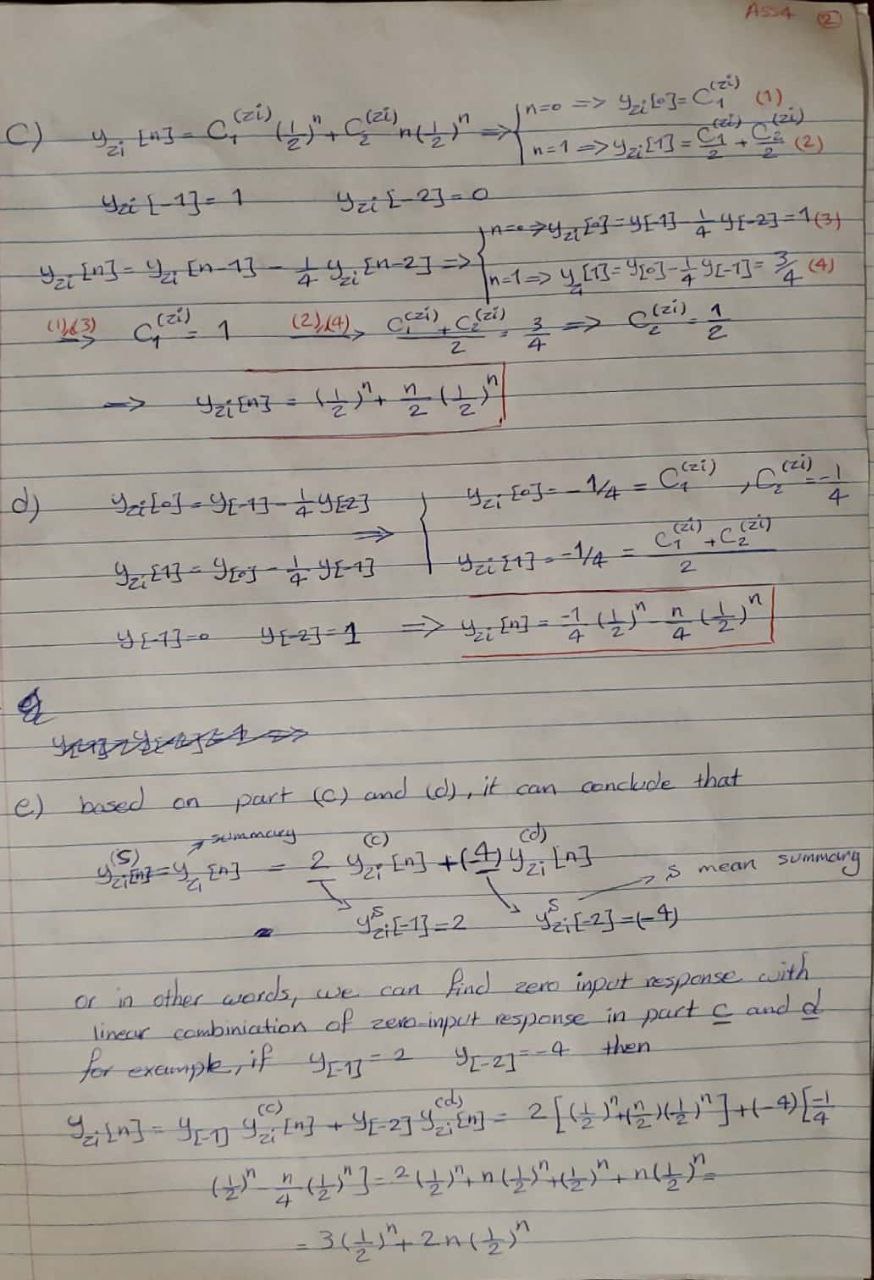 Ass4 ②
c) y_zi[n] = C_1^(zi) (1/2)^n + C_2^(zi) n(1/2)^n => { n=0 => y_zi[0] = C_1^(zi) (1)
n=1 => y_zi[1] = C_1^(zi)/2 + C_2^(zi)/2 (2)
y_zi[-1] = 1 y_zi[-2] = 0
y_zi[n] = y_zi[n-1] - 1/4 y_zi[n-2] => { n=0 => y_zi[0] = y[-1] - 1/4 y[-2] = 1 (3)
n=1 => y_zi[1] = y[0] - 1/4 y[-1] = 3/4 (4)
(1),(3) → C_1^(zi) = 1 (2),(4) → (C_1^(zi) + C_2^(zi))/2 = 3/4 => C_2^(zi) = 1/2
=> y_zi[n] = (1/2)^n + n/2 (1/2)^n
d) y_zi[0] = y[-1] - 1/4 y[-2] => { y_zi[0] = -1/4 = C_1^(zi) , C_2^(zi) = -1/4
y_zi[1] = y[0] - 1/4 y[-1] y_zi[1] = -1/4 = (C_1^(zi) + C_2^(zi))/2
y[-1] = 0 y[-2] = 1 => y_zi[n] = -1/4 (1/2)^n - n/4 (1/2)^n
e) based on part (c) and (d), it can conclude that
summary
y_zi^(S)[n] = y_zi[n] = 2 y_zi^(c)[n] + (-4) y_zi^(d)[n]
S mean summary
y_zi^S[-1] = 2 y_zi^S[-2] = (-4)
or in other words, we can find zero input response with
linear combiniation of zero-input response in part c and d
for example, if y[-1] = 2 y[-2] = -4 then
y_zi[n] = y[-1] y_zi^(c)[n] + y[-2] y_zi^(d)[n] = 2[(1/2)^n + (n/2)(1/2)^n] + (-4)[-1/4
(1/2)^n - n/4 (1/2)^n] = 2(1/2)^n + n(1/2)^n + (1/2)^n + n(1/2)^n =
= 3(1/2)^n + 2n(1/2)^n